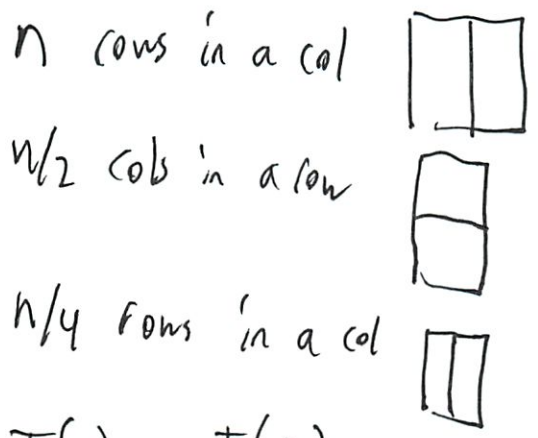 n rows in a col
n/2 cols in a row
n/4 rows in a col